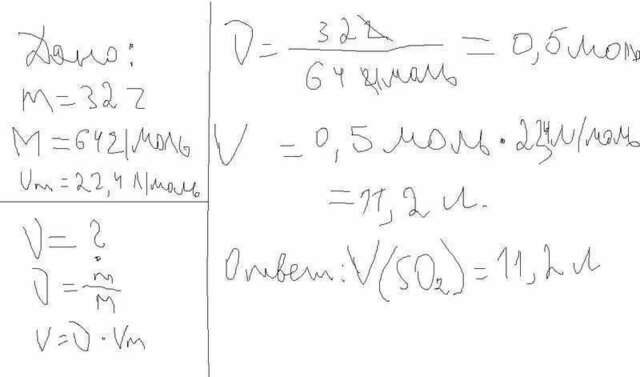 Дано:
m=32 г
M=64 г/моль
Vm=22,4 л/моль
ν=?
ν=m/M
V=ν·Vm
ν=32 г/64 г/моль=0,5 моль
V=0,5 моль·22,4 л/моль
=11,2 л.
Ответ: V(SO₂)=11,2 л